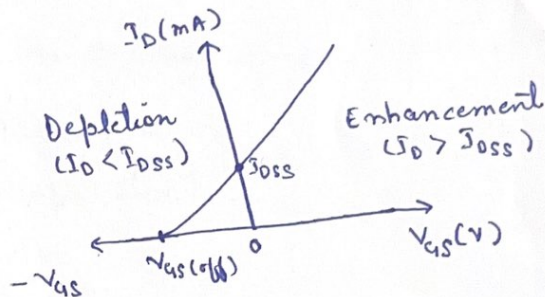 I_D (mA)
Depletion
(I_D < I_DSS)
Enhancement
(I_D > I_DSS)
I_DSS
V_GS(off)
0
V_GS (V)
- V_GS